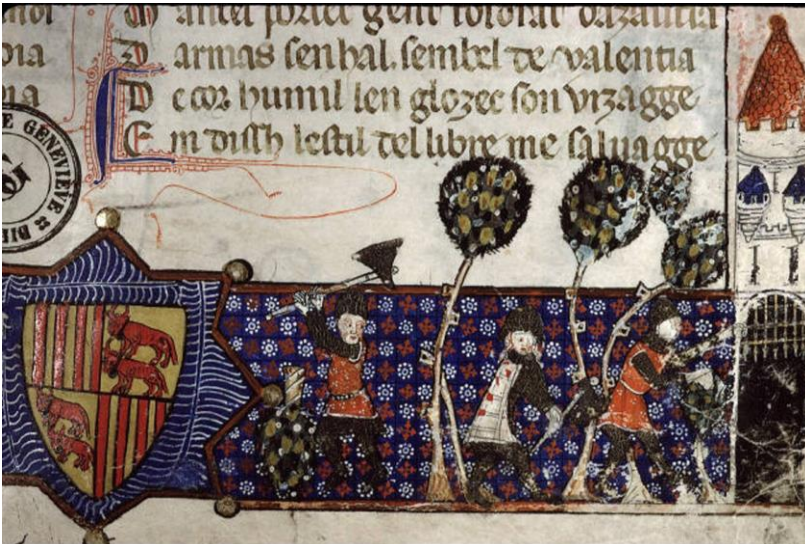 antel portec gent
Z armas senhal. sembel de valentia
D e cor humil len glozec son vizagge
E m dissh lestil del libre me saluagge
GENEVIÈVE